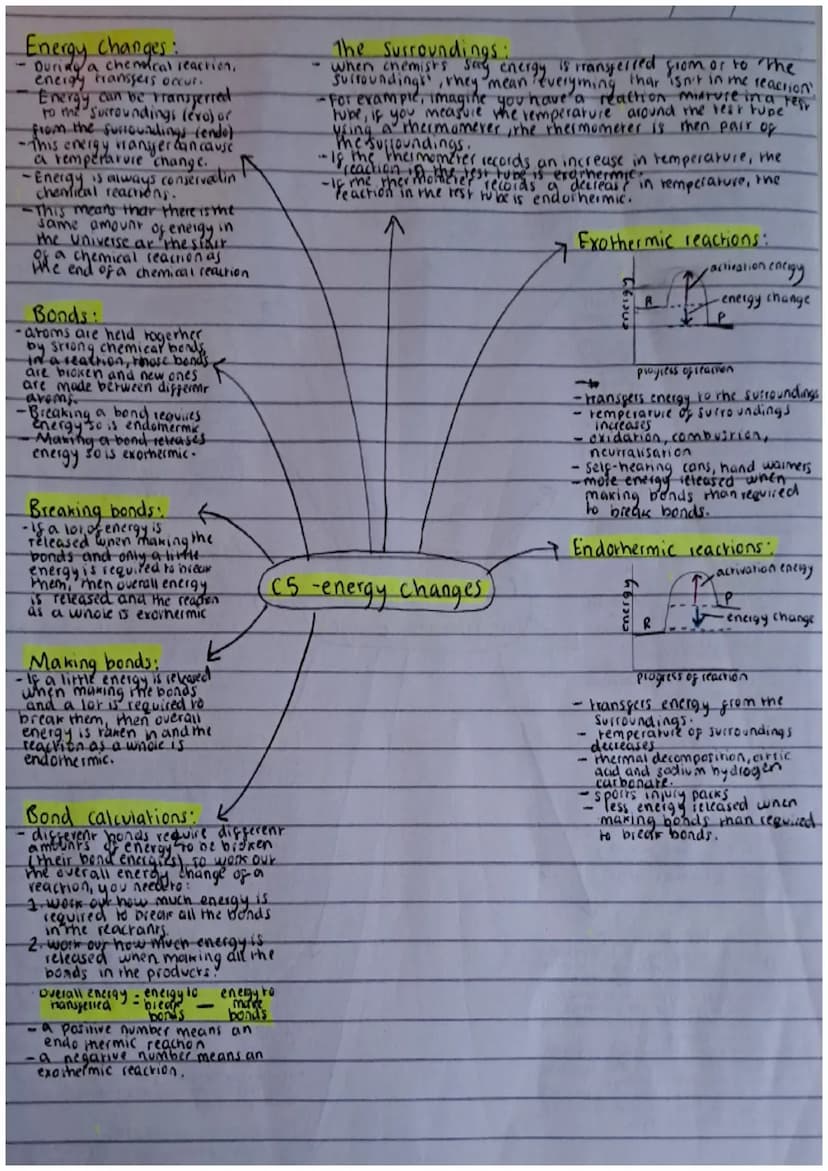 Energy changes:
- During a chemical reaction,
energy transfers occur.
- Energy can be transferred
to the surroundings (exo) or
from the surroundings (endo)
- This energy transfer can cause
a temperature change.
- Energy is always conserved in
chemical reactions.
- This means that there is the
same amount of energy in
the universe at the start
of a chemical reaction as
the end of a chemical reaction
The Surroundings:
- when chemists say energy is transferred from or to "the
surroundings", they mean everything that isn't in the reaction
- For example, imagine you have a reaction mixture in a test
tube, if you measure the temperature around the test tube
using a thermometer, the thermometer is then pair of
the surroundings.
- If the thermometer records an increase in temperature, the
reaction in the test tube is exothermic.
- If the thermometer records a decrease in temperature, the
reaction in the test tube is endothermic.
Exothermic reactions:
activation energy
energy change
energy
R
P
progress of reaction
- transfers energy to the surroundings
- temperature of surroundings
increases
- oxidation, combustion,
neutralisation
- self-heating cans, hand warmers
- more energy released when
making bonds than required
to break bonds.
Bonds:
- atoms are held together
by strong chemical bonds
in a reaction, those bonds
are broken and new ones
are made between different
atoms.
- Breaking a bond requires
energy so is endothermic
- Making a bond releases
energy so is exothermic.
Breaking bonds:
- If a lot of energy is
released when making the
bonds and only a little
energy is required to break
them, then overall energy
is released and the reaction
as a whole is exothermic
C5 - energy changes
Endothermic reactions:
activation energy
energy
P
energy change
R
progress of reaction
- transfers energy from the
surroundings.
- temperature of surroundings
decreases
- thermal decomposition, citric
acid and sodium hydrogen
carbonate.
- sports injury packs
- less energy released when
making bonds than required
to break bonds.
Making bonds:
- If a little energy is released
when making the bonds
and a lot is required to
break them, then overall
energy is taken in and the
reaction as a whole is
endothermic.
Bond calculations:
- different bonds require different
amounts of energy to be broken
(their bond energies) to work out
the overall energy change of a
reaction, you need to:
1. work out how much energy is
required to break all the bonds
in the reactants.
2. work out how much energy is
released when making all the
bonds in the products.
Overall energy transferred = energy to break bonds — energy to make bonds
- a positive number means an
endothermic reaction
- a negative number means an
exothermic reaction.